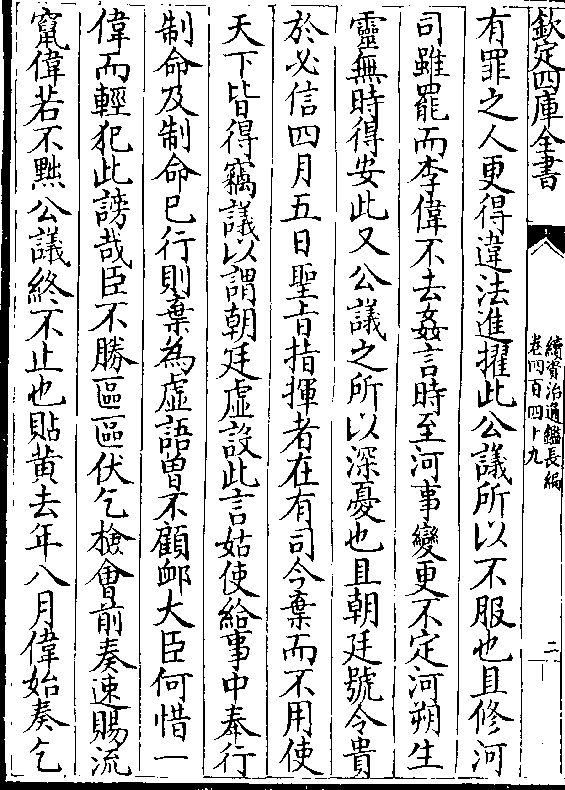 欽定四庫全書
續資治通鑑長編
卷四百四十九
二
有罪之人更得違法進擢此公議所以不服也且修河
司雖罷而李偉不去姦言時至河事變更不定河朔生
靈無時得安此又公議之所以深憂也且朝廷號令貴
於必信四月五日聖㫖指揮者在有司今棄而不用使
天下皆得竊議以謂朝廷虛設此言姑使給事中奉行
制命及制命已行則棄為虛語曽不顧䘏大臣何惜一
偉而輕犯此謗哉臣不勝區區伏乞檢會前奏速賜流
竄偉若不黜公議終不止也貼黄去年八月偉始奏乞